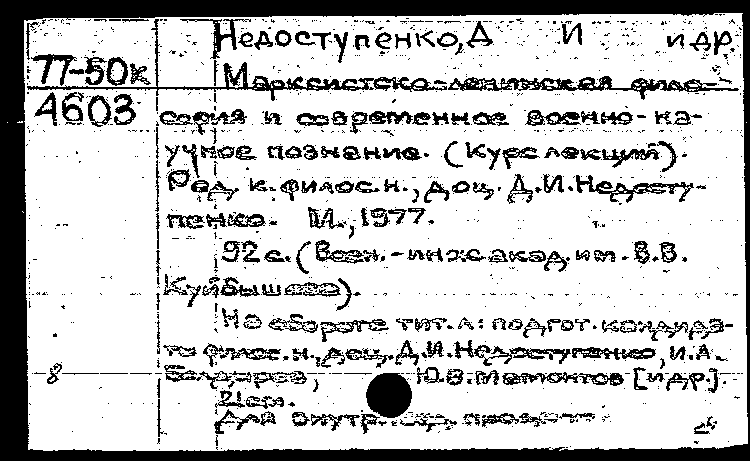 Недоступенко, Д И и др.
77-50к
Марксистско-ленинская фило-
4603
софия и современное военно-на-
учное познание. (Курс лекций).
Ред. к. филос. н., доц. Д.И. Недосту-
пенко. М., 1977.
92 с. (Воен.-инж. акад. им. В.В.
Куйбышева).
На обороте тит. л: подгот. кандида-
ты филос. н., доц. Д.И. Недоступенко, И.А.
8
Болдырев, Ю.В. Мамонтов [и др.].
Для внутр.